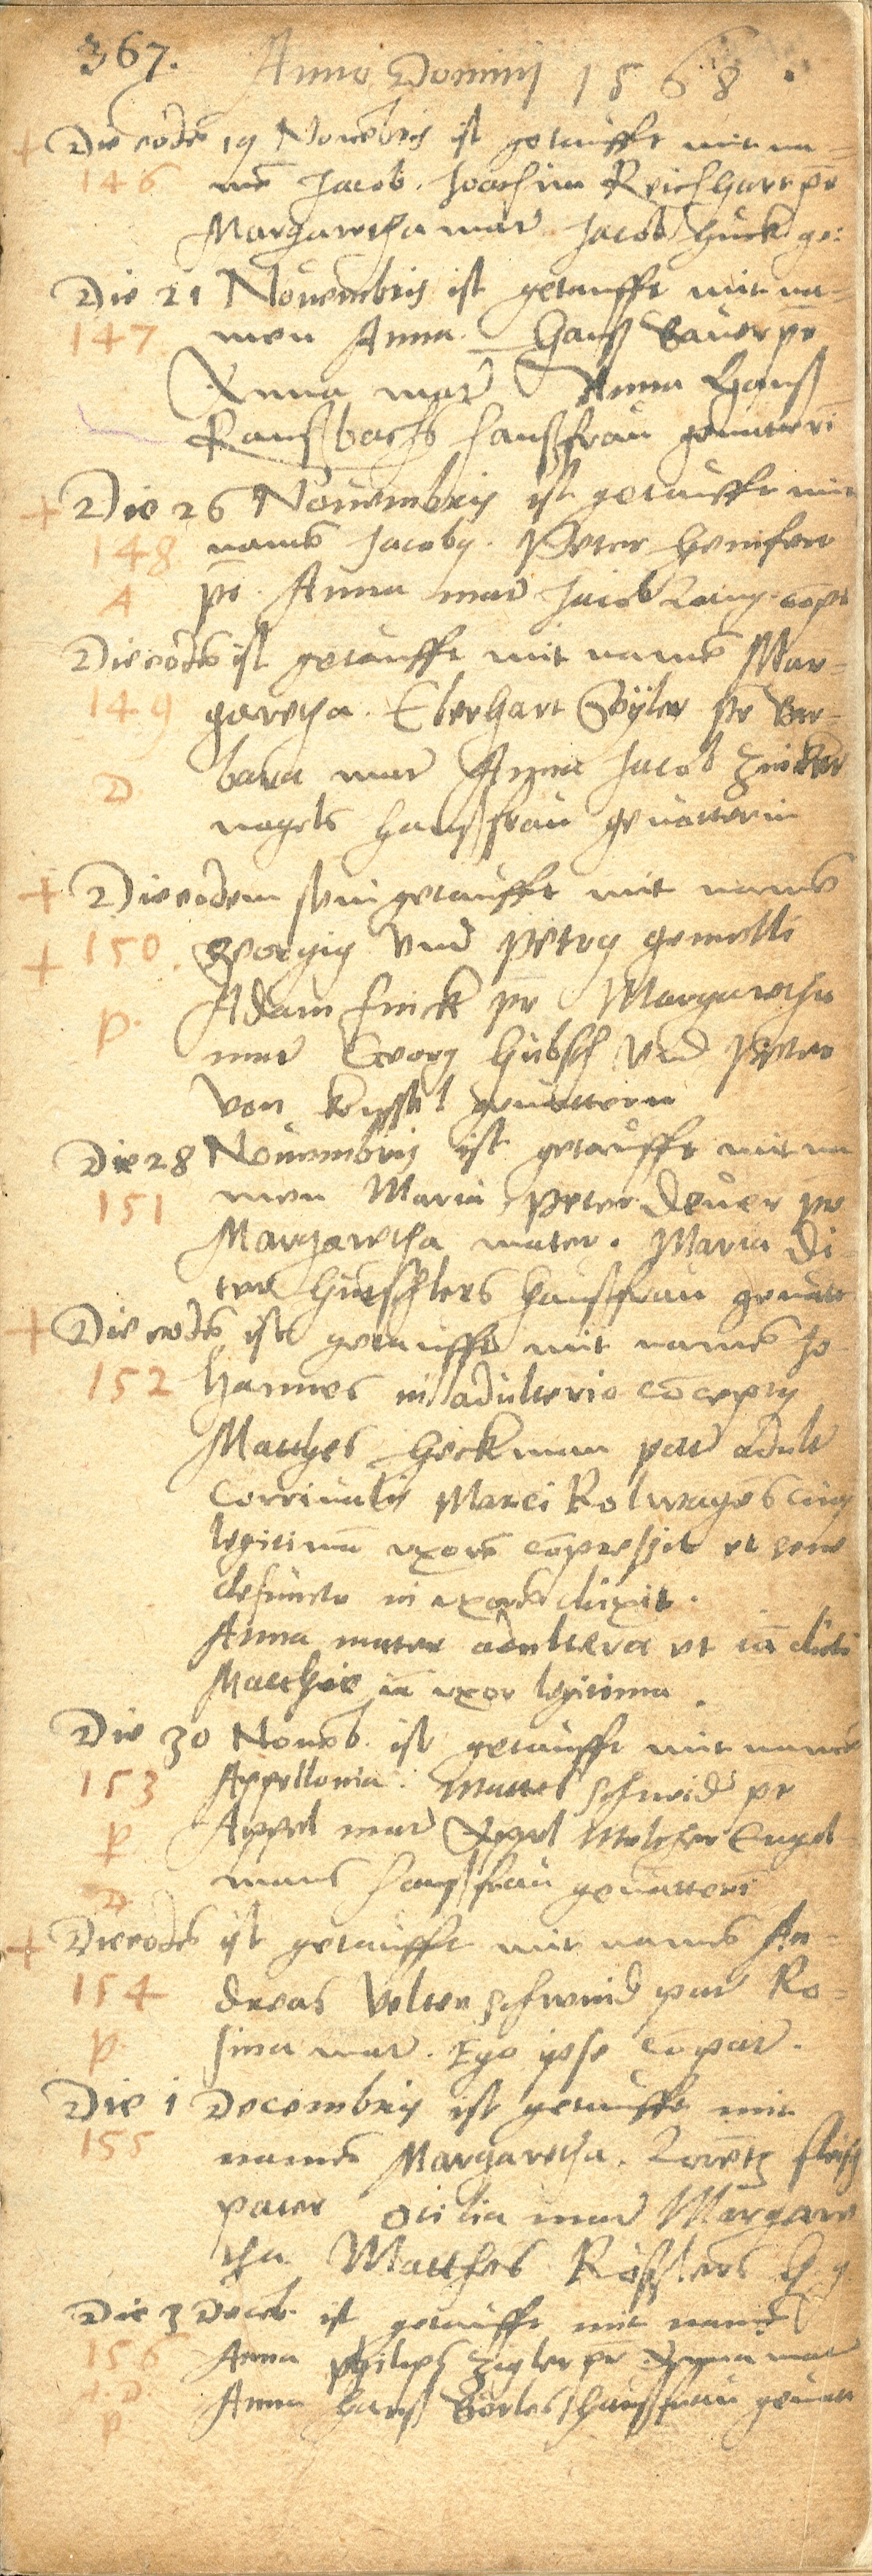 367. Anno Dominj 1568.
+ Die eodē 19 Nouēbris ist getaufft mit na-
146 mē Jacob. Joachim Reichhart pr̄
Margaretha mar̄ Jacob Huck ge:
Die 21 Nouembris ist getaufft mit na-
147 men Anna. Hanß Bauer pr̄
Anna mar̄ Anna Hanß
haußfrau geuatteri
+ Die 26 Nouembris ist getaufft mit
148 namē Jacobꝯ. Peter
A pr̄. Anna mar̄ Jacob Lang cōpr̄
Die eodē ist getaufft mit namē Mar-
149 garetha. Eberhart pr̄ Bar-
D bara mar̄ Anna Jacob Zincker
nagels haußfrau geuatterin
+ Die eodem sein getaufft mit namē
+ 150. Georgiꝯ vnd Petrꝯ gemelli
p. Adam Finck pr̄ Margaretha
mar̄ Georg Hübsch vnd Peter
von geuattern
Die 28 Nouembris ist getaufft mit na
151 men Maria Peter Deuer pr̄
Margaretha mater. Maria Di-
ter haußfrau geuatt
+ Die eodē ist getaufft mit namē Jo-
152 hannes in adulterio cōceptꝯ
Matthes Heckman pater adult
Corriualis Marci Rolwagēs cuiꝯ
legitimā vxorē cōpressit et eme
defuncto in vxorē duxit.
Anna mater adultera et iā dicti
Matthie iā vxor legitima.
Die 30 Nouēb. ist getaufft mit namē
153 Appellonia. Mattes schneid pr̄
p Appel mar̄ Appel Melcher Engel-
D mans haußfrau geuatteri
+ Die eodē ist getaufft mit namē An-
154 dreas Velten schmid pater Ro-
p. sina mar̄. Ego ipse cōpar̄.
Die 1 Decembris ist getaufft mit
155 namē Margaretha. Lorētz fleisch
pater Otilia mar̄ Margare
tha Matthes Rößlers h. g.
Die 3 Decēb. ist getaufft mit namē
156 Anna philips Zigler pr̄ Anna mar̄
A. D. p Anna Hanß haußfrau geuatt